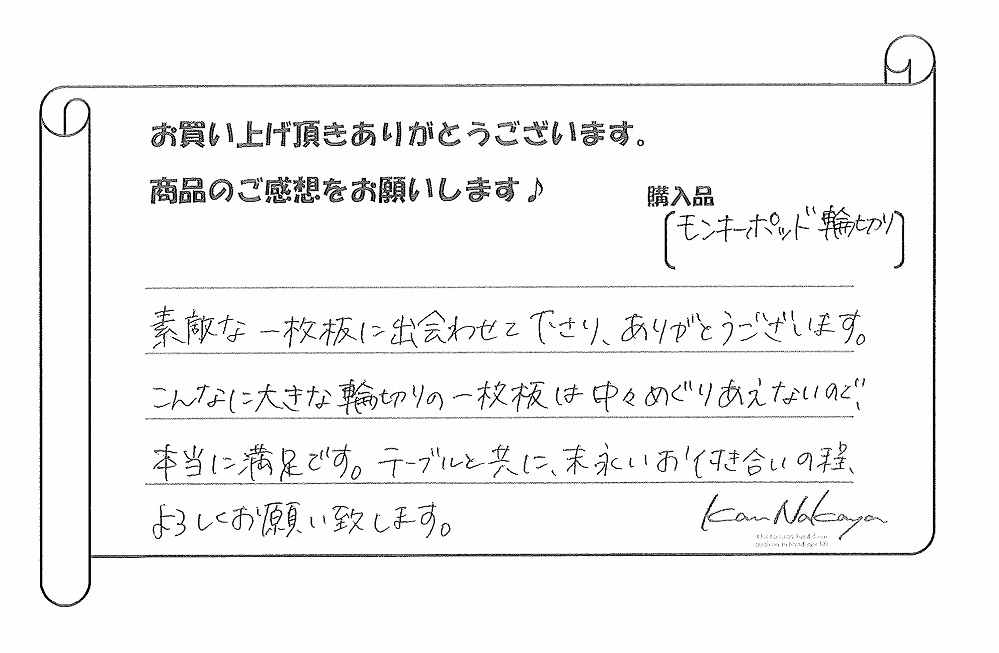 お買い上げ頂きありがとうございます。
商品のご感想をお願いします♪
購入品
モンキーポッド輪切り
素敵な一枚板に出会わせて下さり、ありがとうございます。
こんなに大きな輪切りの一枚板は中々めぐりあえないので、
本当に満足です。テーブルと共に、末永いお付き合いの程、
よろしくお願い致します。
Kan Nakaya